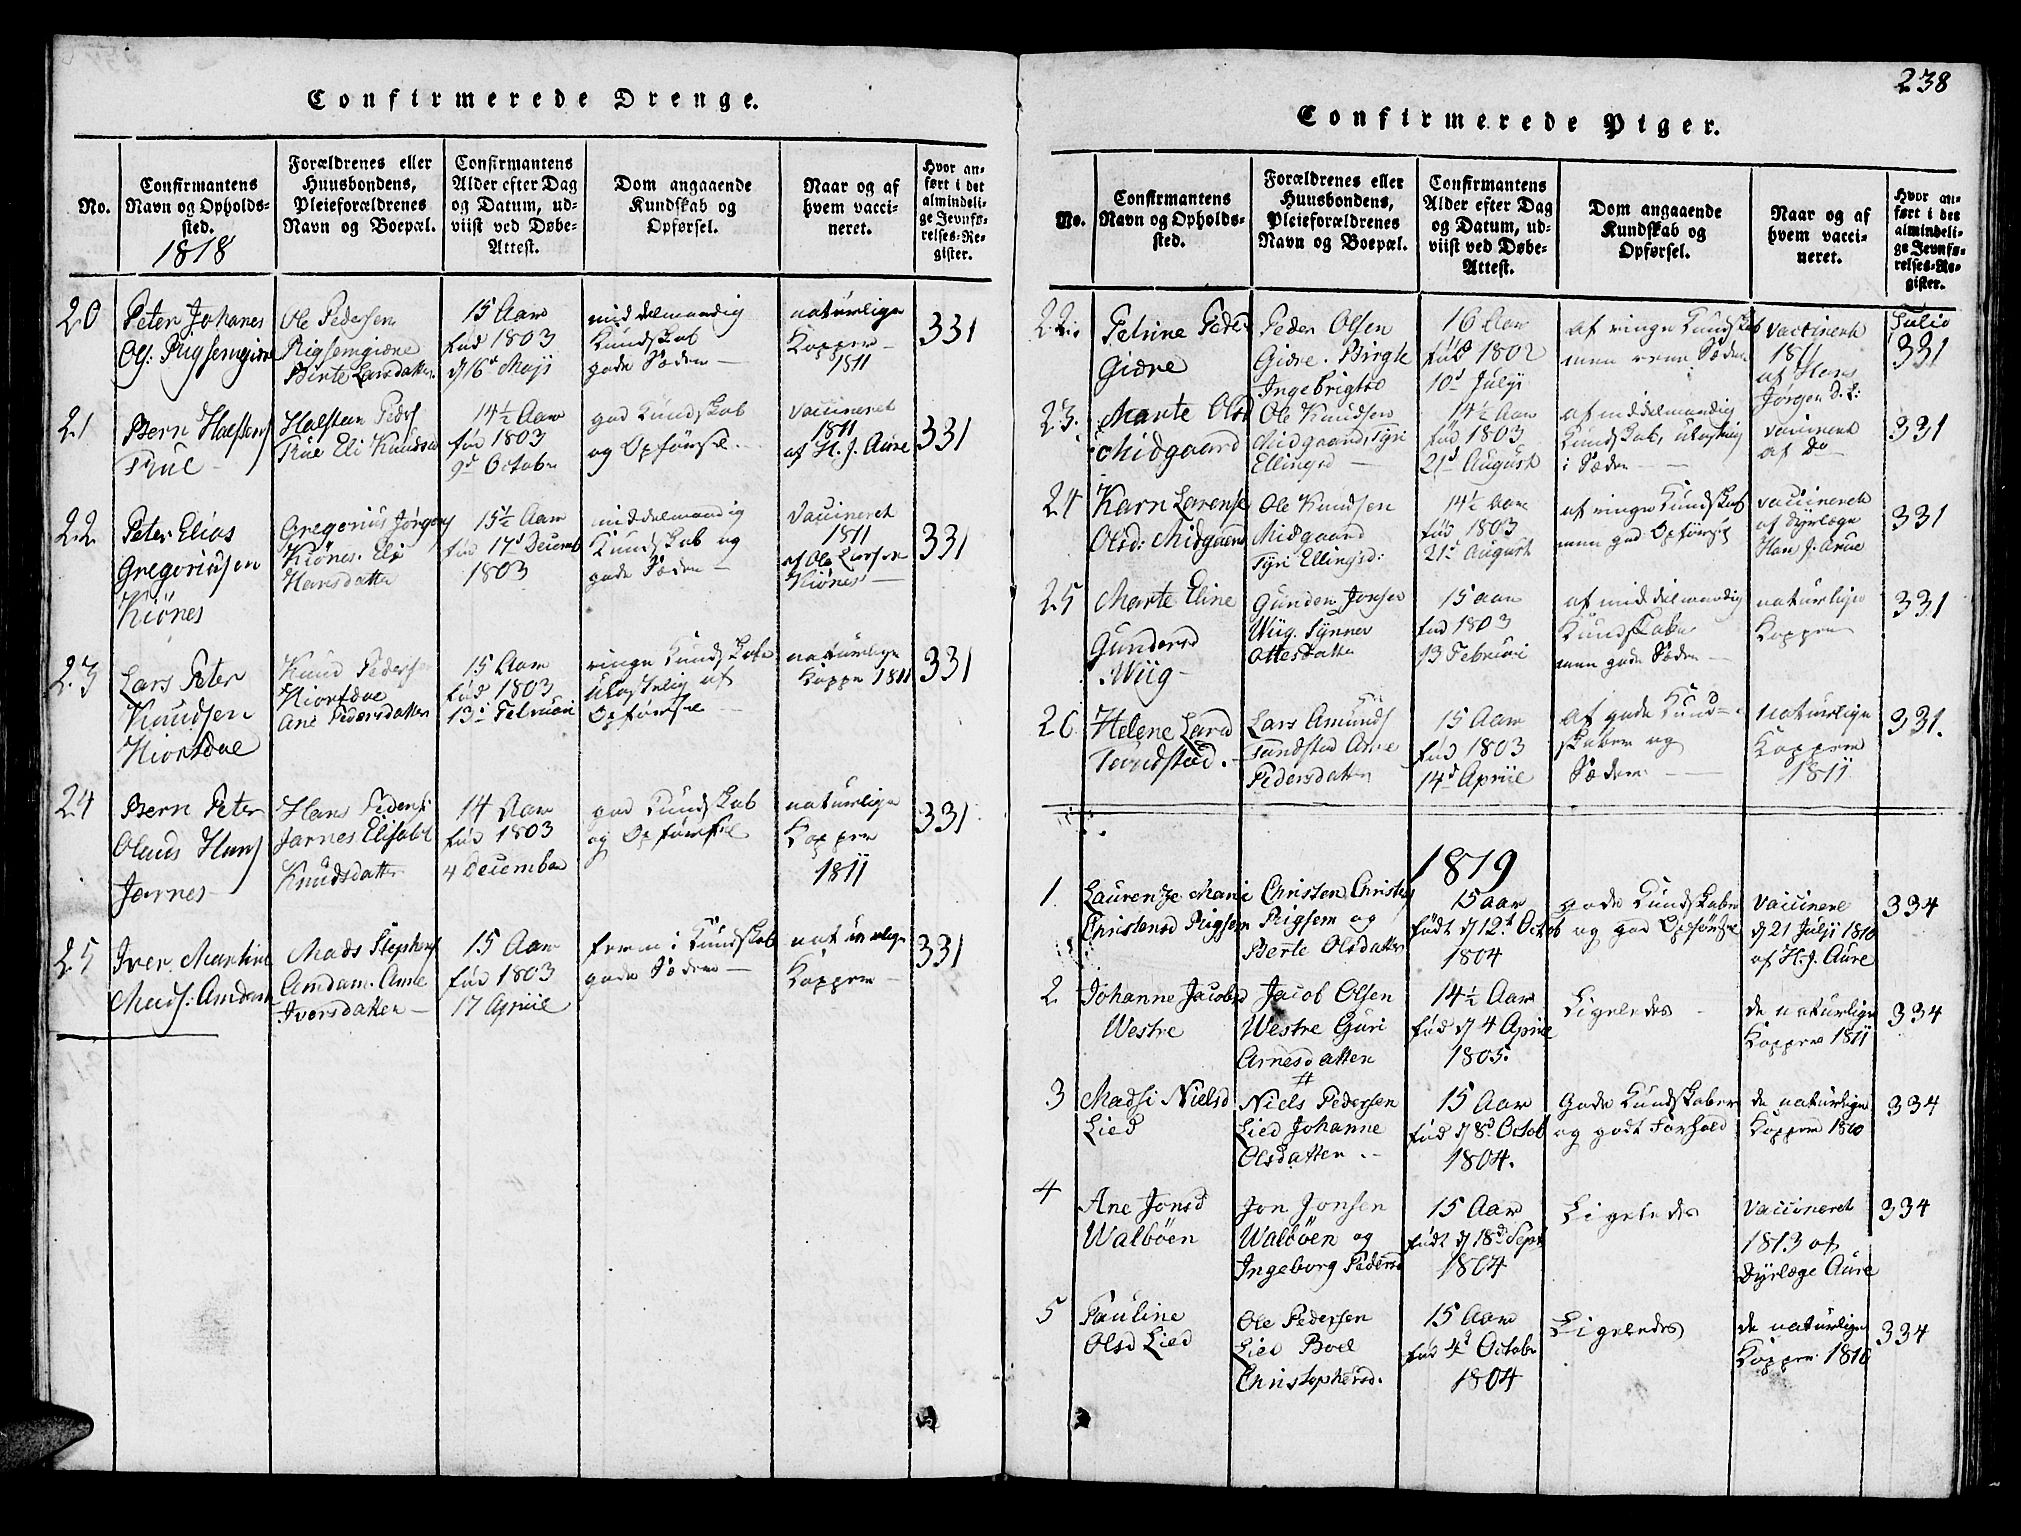 Confirmerede Drenge.
No.
Confirmantens
Navn og Opholds-
sted.
1818
Forældrenes eller
Huusbondens,
Pleieforældrenes
Navn og Boepæl.
Confirmantens
Alder efter Dag
og Datum, ud-
viist ved Døbe-
Attest.
Dom angaaende
Kundskab og
Opførsel.
Naar og af
hvem vacci-
neret.
Hvor an-
ført i det
almindeli-
ge Jevnfø-
relses-Re-
gister.
20
Peter Johanes
Ols: Rigsemgiære
Ole Pedersen
Rigsemgiære
Birte Larsdatter
15 Aar
fød 1803
d 16d Maji
middelmaadig
Kundskab
gode Sæder —
naturlige
Kopper —
1811
331
21
Bern Halstens
Rue —
Halsten Peders
Rue Eli Knudsd
14½ Aar
fød 1803
9d Octobr
god Kundskab
og Opførsel. —
vaccineret
1811
af H. J. Aure
331
22
Peter Elias
Gregoriusen
Kiønes
Gregorius Jørgens
Kiønes. Eli
Hansdatter
15½ Aar
fød 17d Decemb
1803
middelmaadig
Kundskab og
gode Sæder —
Vaccineret
1811
af Ole Larsen
Kiønes —
331
23
Lars Peter
Knudsen
Hiortdue
Knud Peders
Hiortdue
Ane Pedersdatter
15 Aar
fød 1803
13d Februari
ringe Kundskaber
ulastelig af
Opførsel —
naturlige
Kopper 1811
331
24
Bern Peter
Olaus Hans
Jarnes —
Hans Peders:
Jarnes Elisabet
Knudsdatter
14 Aar
fød 1803
4 December
god Kundskab
og Opførsel
naturlige
Kopper
1811
331
25
Iver Martin
Mads: Amdam
Mads Stephens
Amdam. Anne
Iversdatter —
15 Aar
fød 1803
17 Apriil
frem i Kundskab
gode Sæder —
naturlige
Kopper —
331
238
Confirmerede Piger.
No.
Confirmantens
Navn og Opholds-
sted.
Forældrenes eller
Huusbondens,
Pleieforældrenes
Navn og Boepæl.
Confirmantens
Alder efter Dag
og Datum, ud-
viist ved Døbe-
Attest.
Dom angaaende
Kundskab og
Opførsel.
Naar og af
hvem vacci-
neret.
Hvor an-
ført i det
almindeli-
ge Jevnfø-
relses-Re-
gister.
22.
Petrine Peder
Giære
Peder Olsen
Giære. Birgte
Ingebrigtsd
16 Aar
fød 1802
10d Julii
af ringe Kundskab
men rene Sæder
vaccineret
1811
af Hans
Jørgen D. L:
Julio
331
23.
Marte Olsd
Midgaard
Ole Knudsen
Midgaard Tyri
Ellingsd —
14½ Aar
fød 1803
21d August
af middelmaadig
Kundskab, ulastelig
i Sæder — —
vaccineret
af Do —
331
24
Karn Lorense
Olsd: Midgaard
Ole Knudsen
Midgaard
Tyri Ellingsd:
14½ Aar
fød 1803
21d August
af ringe Kundskab
men god Opførsel
vaccineret
af Dyrlæge
Han J. Arue
331
25
Marte Eline
Gundersd
Wiig —
Gunder Jonsen
Wiig. Synnev
Ottesdatter
15 aar
fød 1803
13 Februari
af middelmaadig
Kundskaber
men gode Sæder —
naturlige
Kopper
331
26
Helene Larsd
Tandstad. —
Lars Amunds
Tandstad Ane
Pedersdatter
15 Aar
fød 1803
14d Apriil
af gode Kund-
skaber og
Sæder. — —
naturlige
Kopper
1811
331.
1819
1.
Laurentze Marie
Christensd Rigsem
Christen Christens
Rigsem og
Berte Olsdatter
15 aar
født d 12t Octob
1804
gode Kundskaber
og god Opførsel
Vaccinere
d 21 Julii 1810
af H. J. Aure
334
2
Johanne Jacobsd
Westre
Jacob Olsen
Westre Guri
Arnesdatter
14½ Aar
fød d 4 Apriil
1805.
Ligeledes
de naturlige
Kopper 1811
334
3
Madsi Nielsd
Lied
Niels Pedersen
Lied Johanne
Olsdatter. —
15 Aar
fød d 8d. Octob
1804.
Gode Kundskaber
og godt Forhold
de naturlige
Kopper 1810
334
4
Ane Jonsd
Walbøen
Jon Jonsen
Walbøen og
Ingeborg Pedersd
15 Aar
født d 18d Sept
1804
Ligeledes
Vaccineret
1813 af
Dyrlæge Aure
334
5
Pauline
Olsd Lied
Ole Pedersen
Lied Boel
Christophersd.
15 Aar
fød 4d Octobr
1804
Ligeledes
de naturlige
Kopper 1810
334